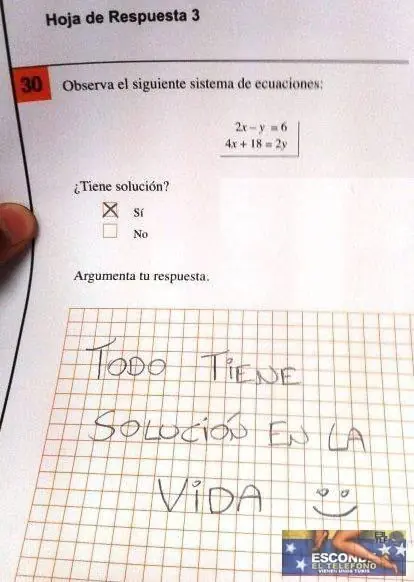 Hoja de Respuesta 3
30 Observa el siguiente sistema de ecuaciones:
2x - y = 6
4x + 18 = 2y
¿Tiene solución?
Sí
No
Argumenta tu respuesta.
TODO TiENE
SOLUCiÓN EN LA
ViDA
ESCOND
EL TELEFONO
VIENEN UNOS TUKIS